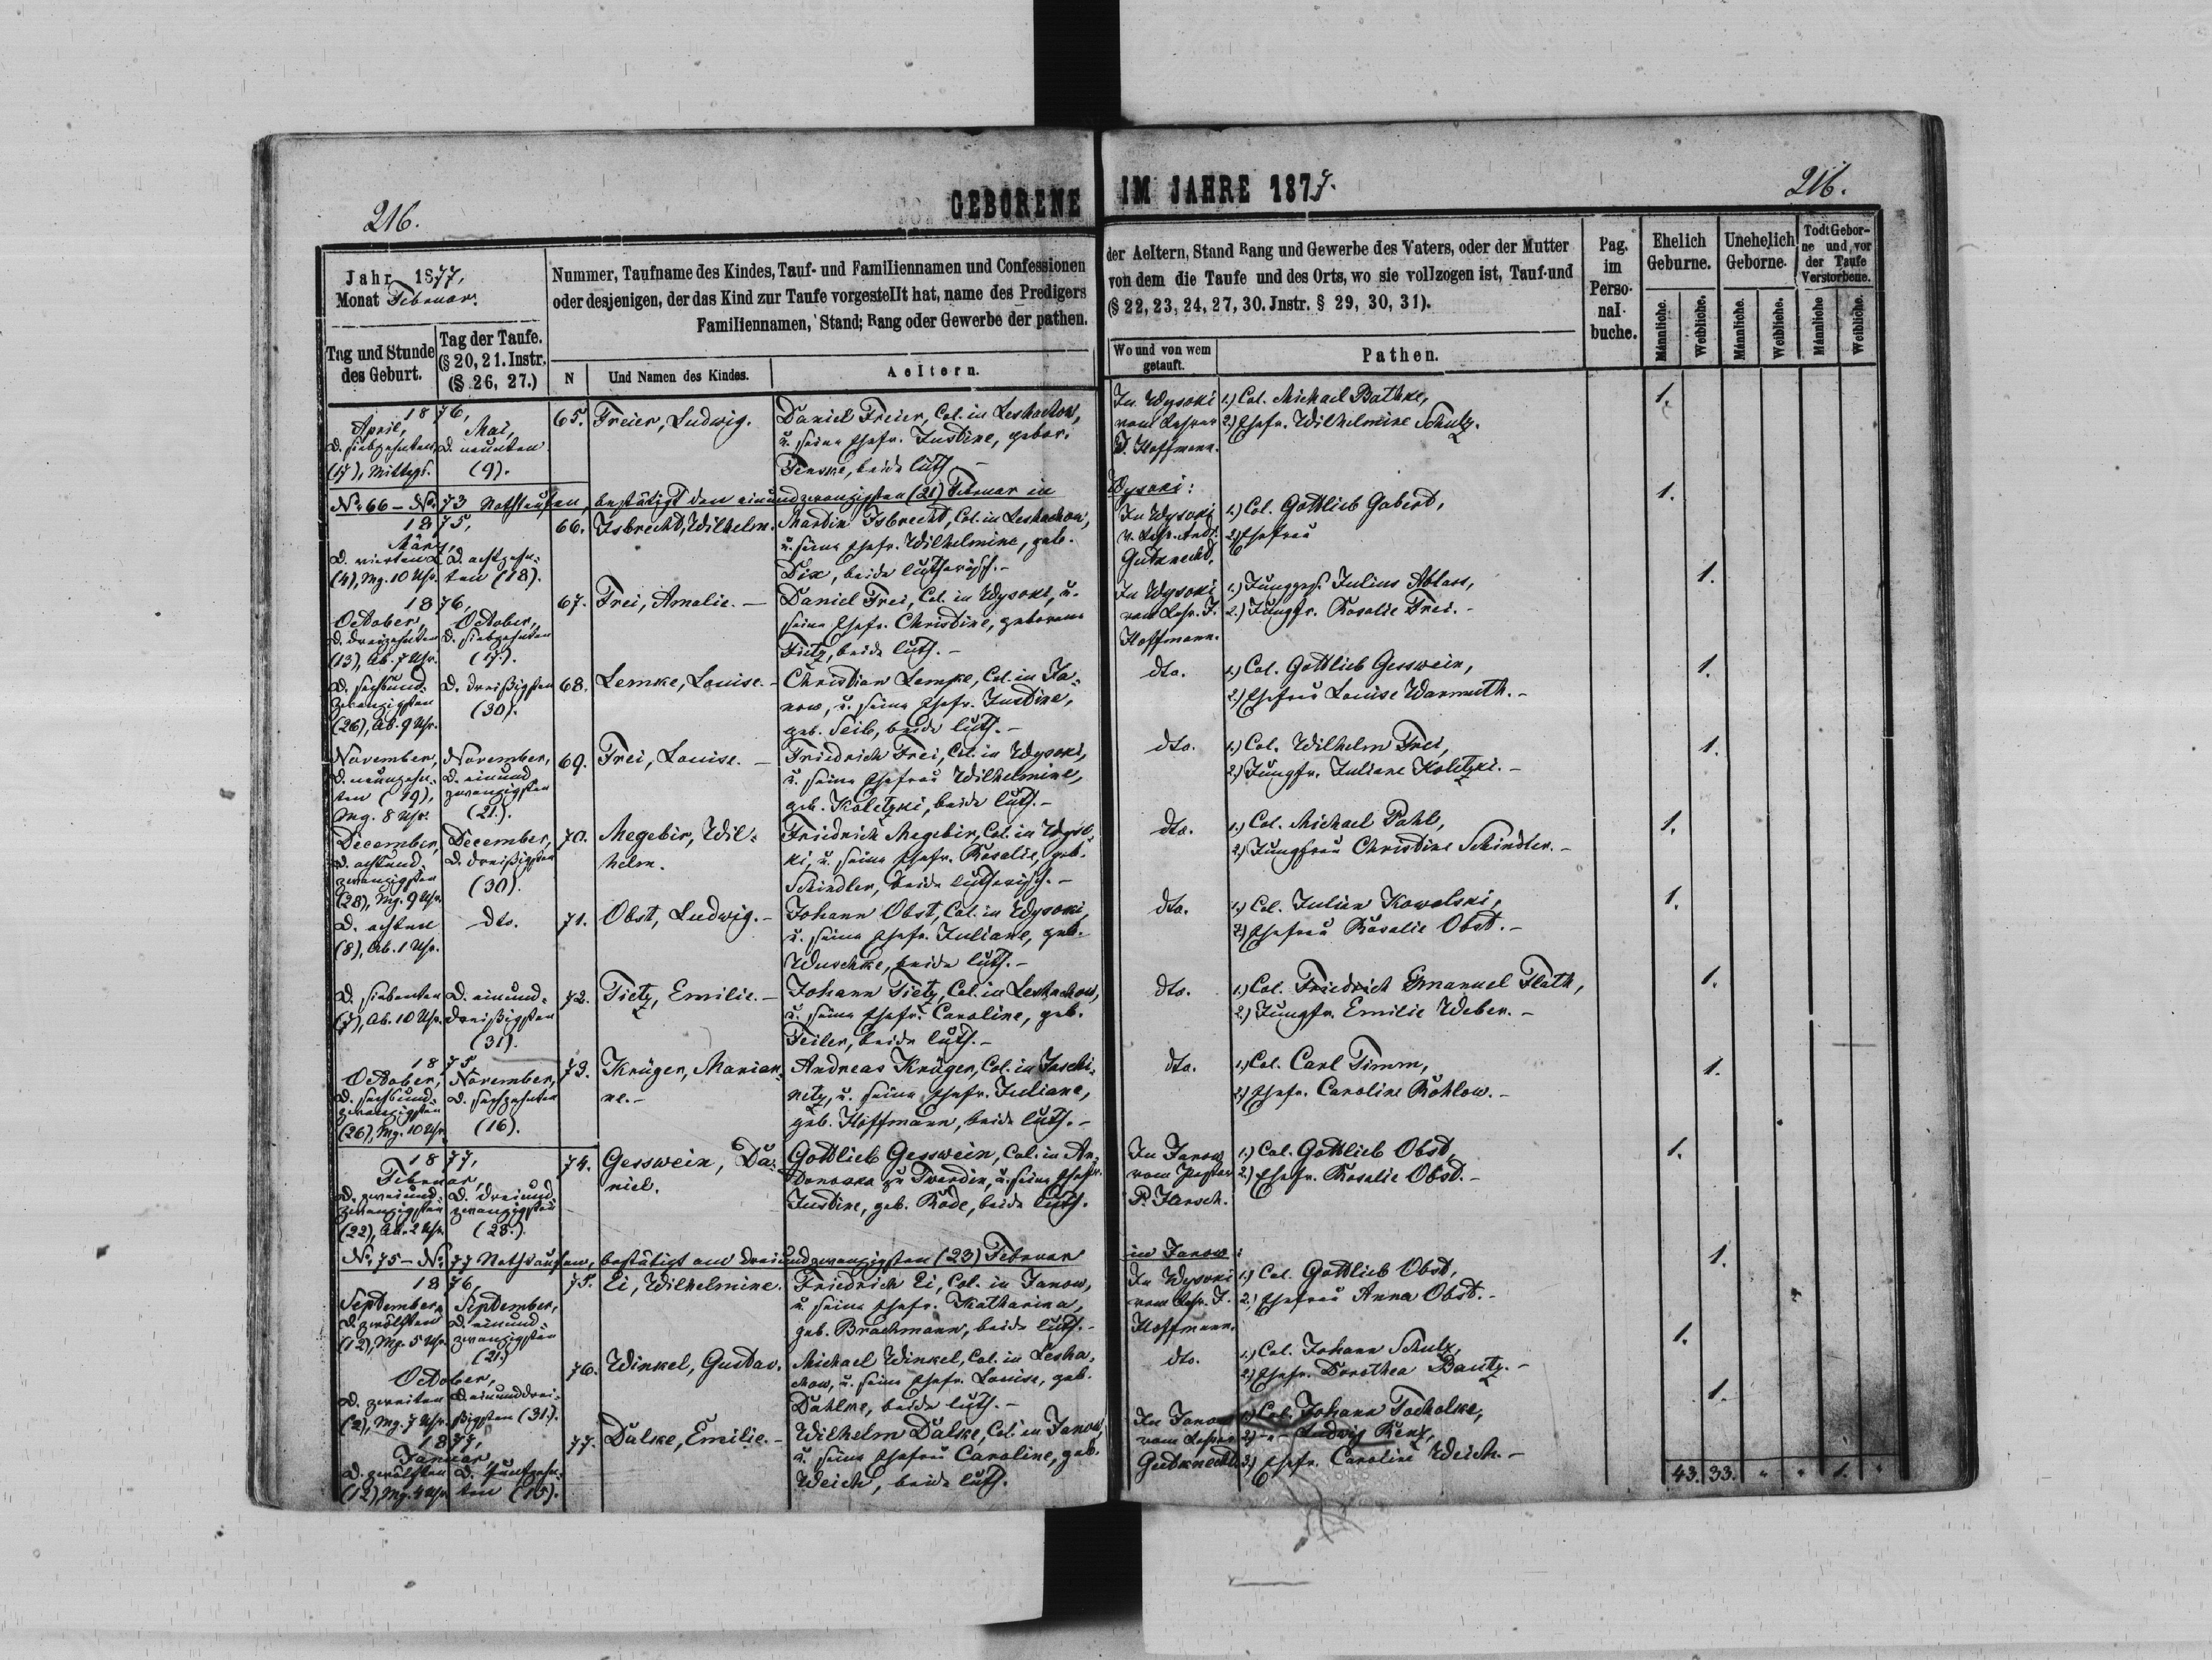 216.
GEBORENE
Jahr 1877,
Monat Februar.
Nummer, Taufname des Kindes, Tauf- und Familiennamen und Confessionen
oder desjenigen, der das Kind zur Taufe vorgestellt hat, name des Predigers
Familiennamen, Stand; Rang oder Gewerbe der pathen.
Tag und Stunde
des Geburt.
Tag der Taufe.
(§ 20, 21. Instr.
(§ 26, 27.)
N
Und Namen des Kindes.
Aeltern.
1876,
April,
D. siebzehnten
(17), Mittags.
Mai,
D. neunten
(9).
65.
Freier, Ludwig.
Daniel Freier, Col. in Leshachow,
u. seine Ehefr. Justine, gebor.
beide luth. -
No. 66 - No. 73 Nothtaufen, bestätigt den einundzwanzigsten (21) Februar in
1875,
März,
D. vierten
(4), Mg. 10 Uhr.
D. achtzehn-
ten (18).
66.
Isbrecht, Wilhelm.
Martin Isbrecht, Col. in Leshachow,
u. seine Ehefr. Wilhelmine, geb.
Dix, beide lutherisch. -
1876,
October,
D. dreizehnten
(13), Ab. 7 Uhr.
October,
D. siebzehnten
(17).
67.
Frei, Amalie. -
Daniel Frei, Col. in Wysoki, u.
seine Ehefr. Christine, geborene
Tietz, beide luth. -
D. sechsund-
zwanzigsten
(26), Ab. 9 Uhr.
D. dreißigsten
(30).
68.
Lemke, Louise. -
Christian Lemke, Col. in Ja-
now, u. seine Ehefr. Justine,
geb. Seib, beide luth. -
November,
D. neunzehn-
ten (19),
Mg. 8 Uhr.
November,
D. einund-
zwanzigsten
(21.).
69.
Frei, Louise. -
Friedrich Frei, Col. in Wysoki,
u. seine Ehefrau Wilhelmine,
geb. Koletzki, beide luth. -
December,
D. achtund-
zwanzigsten
(28), Mg. 9 Uhr.
December,
D. dreißigsten
(30).
70.
Megebir, Wil-
helm.
Friedrich Megebir, Col. in Wyso-
ki, u. seine Ehefr. Rosalie, geb.
Schindler, beide lutherisch. -
D. achten
(8), Ab. 1 Uhr.
dto.
71.
Obst, Ludwig. -
Johann Obst, Col. in Wysoki,
u. seine Ehefr. Juliane, geb.
Wuschke, beide luth. -
D. siebenten
(7), Ab. 10 Uhr.
D. einund-
dreißigsten
(31).
72.
Tietz, Emilie. -
Johann Tietz, Col. in Leshachow,
u. seine Ehefr. Caroline, geb.
Feiler, beide luth. -
1875
October,
D. sechsund-
zwanzigsten
(26), Mg. 10 Uhr.
November,
D. sechzehnten
(16).
73.
Krüger, Marian-
ne. -
Andreas Krüger, Col. in Joschi-
nitz, u. seine Ehefr. Juliane,
geb. Hoffmann, beide luth. -
1877,
Februar,
D. zweiund-
zwanzigsten
(22), Ab. 2 Uhr.
D. dreiund-
zwanzigsten
(23.).
74.
Gesswein, Da-
niel.
Gottlieb Gesswein, Col. in An-
zu Twerdin, u. seine Ehefr.
Justine, geb. Rode, beide luth.
No. 75 - No. 77 Nothtaufen, bestätigt am dreiundzwanzigsten (23) Februar
1876,
September,
D. zwölften
(12), Mg. 5 Uhr.
September,
D. einund-
zwanzigsten
(21.)
75.
Ei, Wilhelmine.
Friedrich Ei, Col. in Janow,
u. seine Ehefr. Katharina,
geb. Brachmann, beide luth. -
October,
D. zweiten
(2), Mg. 7 Uhr.
D. einunddrei-
ßigsten (31.).
76.
Winkel, Gustav.
Michael Winkel, Col. in Lesha-
chow, u. seine Ehefr. Louise, geb.
Dahlke, beide luth. -
1877,
Januar,
D. zwölften
(12), Mg. 4 Uhr.
D. fünfzehn-
ten (15).
77.
Dalke, Emilie. -
Wilhelm Dalke, Col. in Janow,
u. seine Ehefrau Caroline, geb.
Weich, beide luth.
IM JAHRE 1877.
216.
der Aeltern, Stand Rang und Gewerbe des Vaters, oder der Mutter
von dem die Taufe und des Orts, wo sie vollzogen ist, Tauf-und
(§ 22, 23, 24, 27, 30. Jnstr. § 29, 30, 31).
Wo und von wem
getauft.
Pathen.
Pag.
im
Perso-
nal-
buche.
Ehelich
Geburne.
Unehelich
Geborne.
Todt Gebor-
ne und vor
der Taufe
Verstorbene.
Männliche.
Weibliche.
Männliche.
Weibliche.
Männliche
Weibliche.
In Wysoki
vom Lehrer
J. Hoffmann.
1.) Col. Michael Bathke,
2.) Ehefr. Wilhelmine Schulz.
1.
Wysoki:
In Wysoki
v. Lehr. Andr.
Gutknecht.
1.) Col. Gottlieb Gabert,
2.) Ehefrau
1.
In Wysoki
vom Lehr. J.
Hoffmann.
1.) Junggs. Julius Ablass,
2.) Jungfr. Rosalie Frei. -
1.
dto.
1.) Col. Gottlieb Gesswein,
2.) Ehefrau Louise Warmuth. -
1.
dto.
1.) Col. Wilhelm Frei,
2.) Jungfr. Juliane Koletzki. -
1.
dto.
1.) Col. Michael Pahl,
2.) Jungfrau Christine Schindler. -
1.
dto.
1.) Col. Julian Kowalski,
2.) Ehefrau Rosalie Obst. -
1.
dto.
1.) Col. Friedrich Emanuel Flath,
2.) Jungfr. Emilie Weber. -
1.
dto.
1.) Col. Carl Timm,
2.) Ehefr. Caroline Rohlow. -
1.
In Janow
vom Pastor
P. Harsch.
1.) Col. Gottlieb Obst,
2.) Ehefr. Rosalie Obst. -
1.
in Janow:
In Wysoki
vom Lehr. J.
Hoffmann.
1.) Col. Gottlieb Obst,
2.) Ehefrau Anna Obst. -
1.
dto.
1.) Col. Johann Schulz,
2.) Ehefr. Dorothea Bautz. -
1.
In Janow
vom Lehrer
Gutknecht.
1.) Col. Johann Tocholke,
2.) -"- Ludwig Renz,
3.) Ehefr. Caroline Weich. -
1.
43. 33. " " 1. "